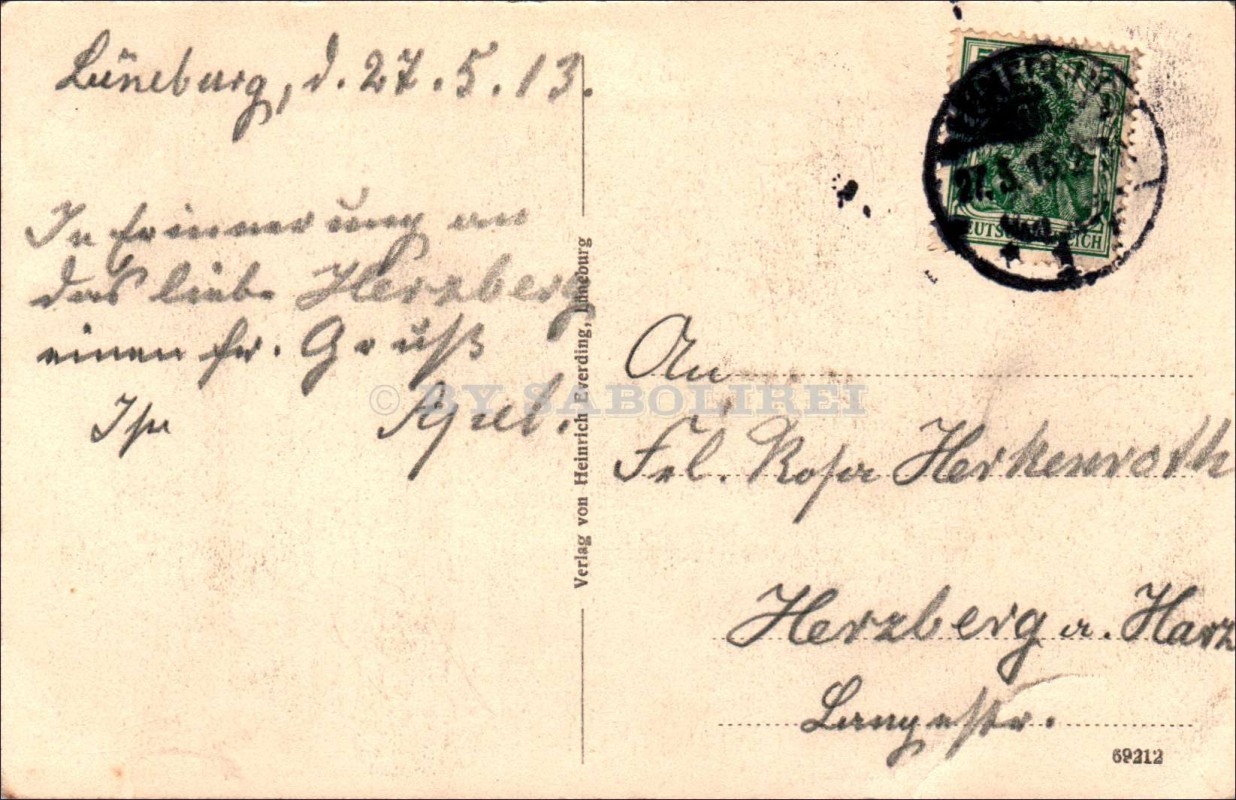 Lüneburg, d. 27.5.13.
In Erinnerung an
das liebe Herzberg
einen fr. Gruß
Ihr Apel.
Verlag von Heinrich Everding, Lüneburg
27.5.13.
DEUTSCHES REICH
An
Frl. Rosa Herkenroth
Herzberg a. Harz
Langestr.
69212
© BY SABOLIREI